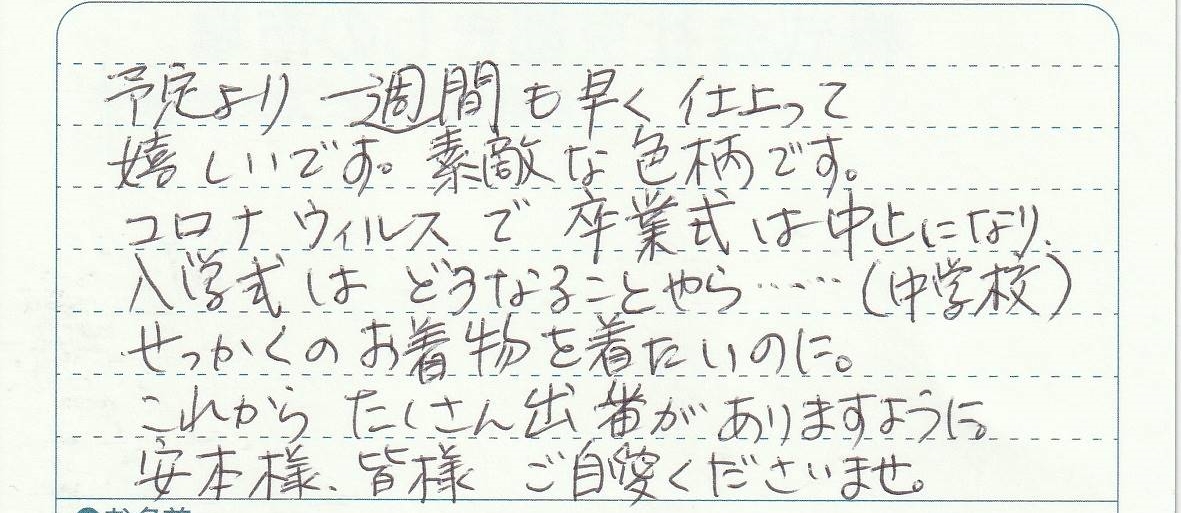 予定より一週間も早く仕上って
嬉しいです。素敵な色柄です。
コロナウィルスで卒業式は中止になり、
入学式はどうなることやら……(中学校)
せっかくのお着物を着たいのに。
これからたくさん出番がありますように。
安本様、皆様 ご自愛くださいませ。
お名前